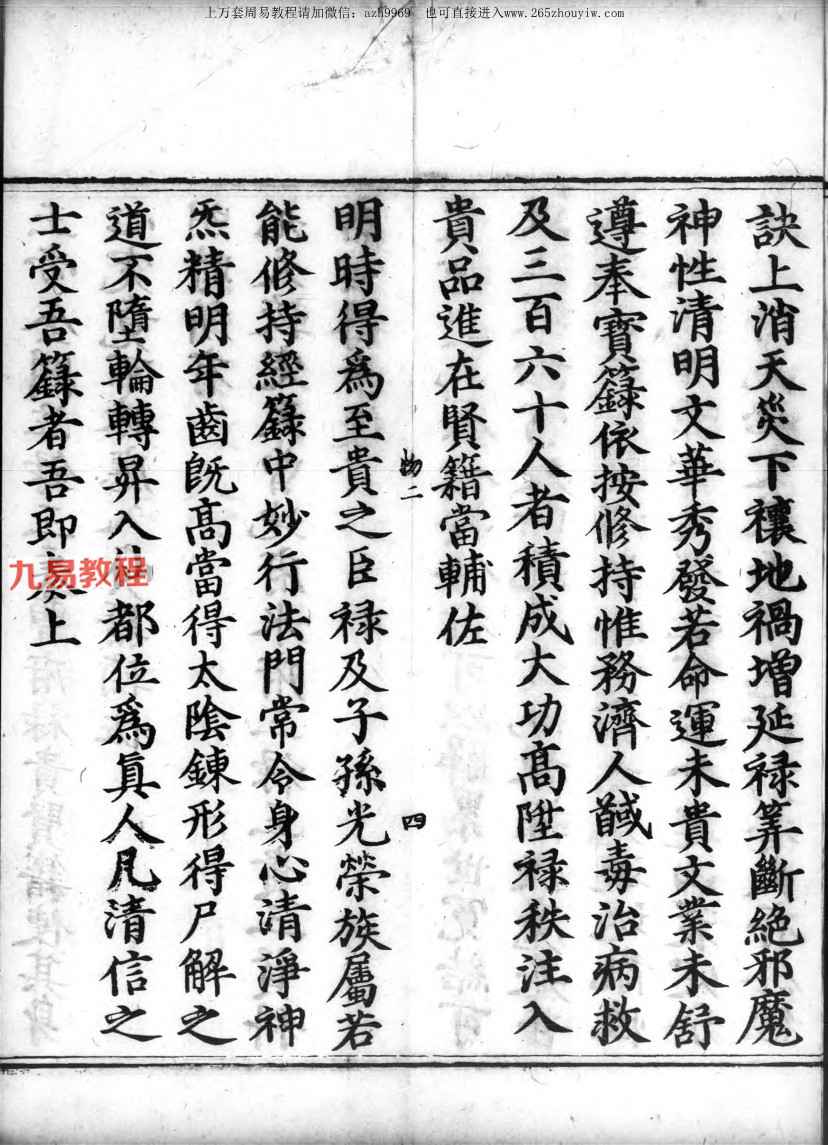 上万套周易教程请加微信：azh9969 也可直接进入www.265zhouyiw.com
訣上消天災下禳地禍增延禄筭斷絕邪魔
神性清明文華秀發若命運未貴文業未舒
遵奉寳籙依按修持惟務濟人馘毒治病救
及三百六十人者積成大功髙陞禄秩注入
貴品進在賢籍當輔佐
物二 四
明時得爲至貴之臣禄及子孫光榮族屬若
能修持經籙中妙行法門常令身心清淨神
炁精明年齒旣髙當得太陰錬形得尸解之
道不墮輪轉昇入 都位爲眞人凡清信之
士受吾籙者吾即 上
九易教程